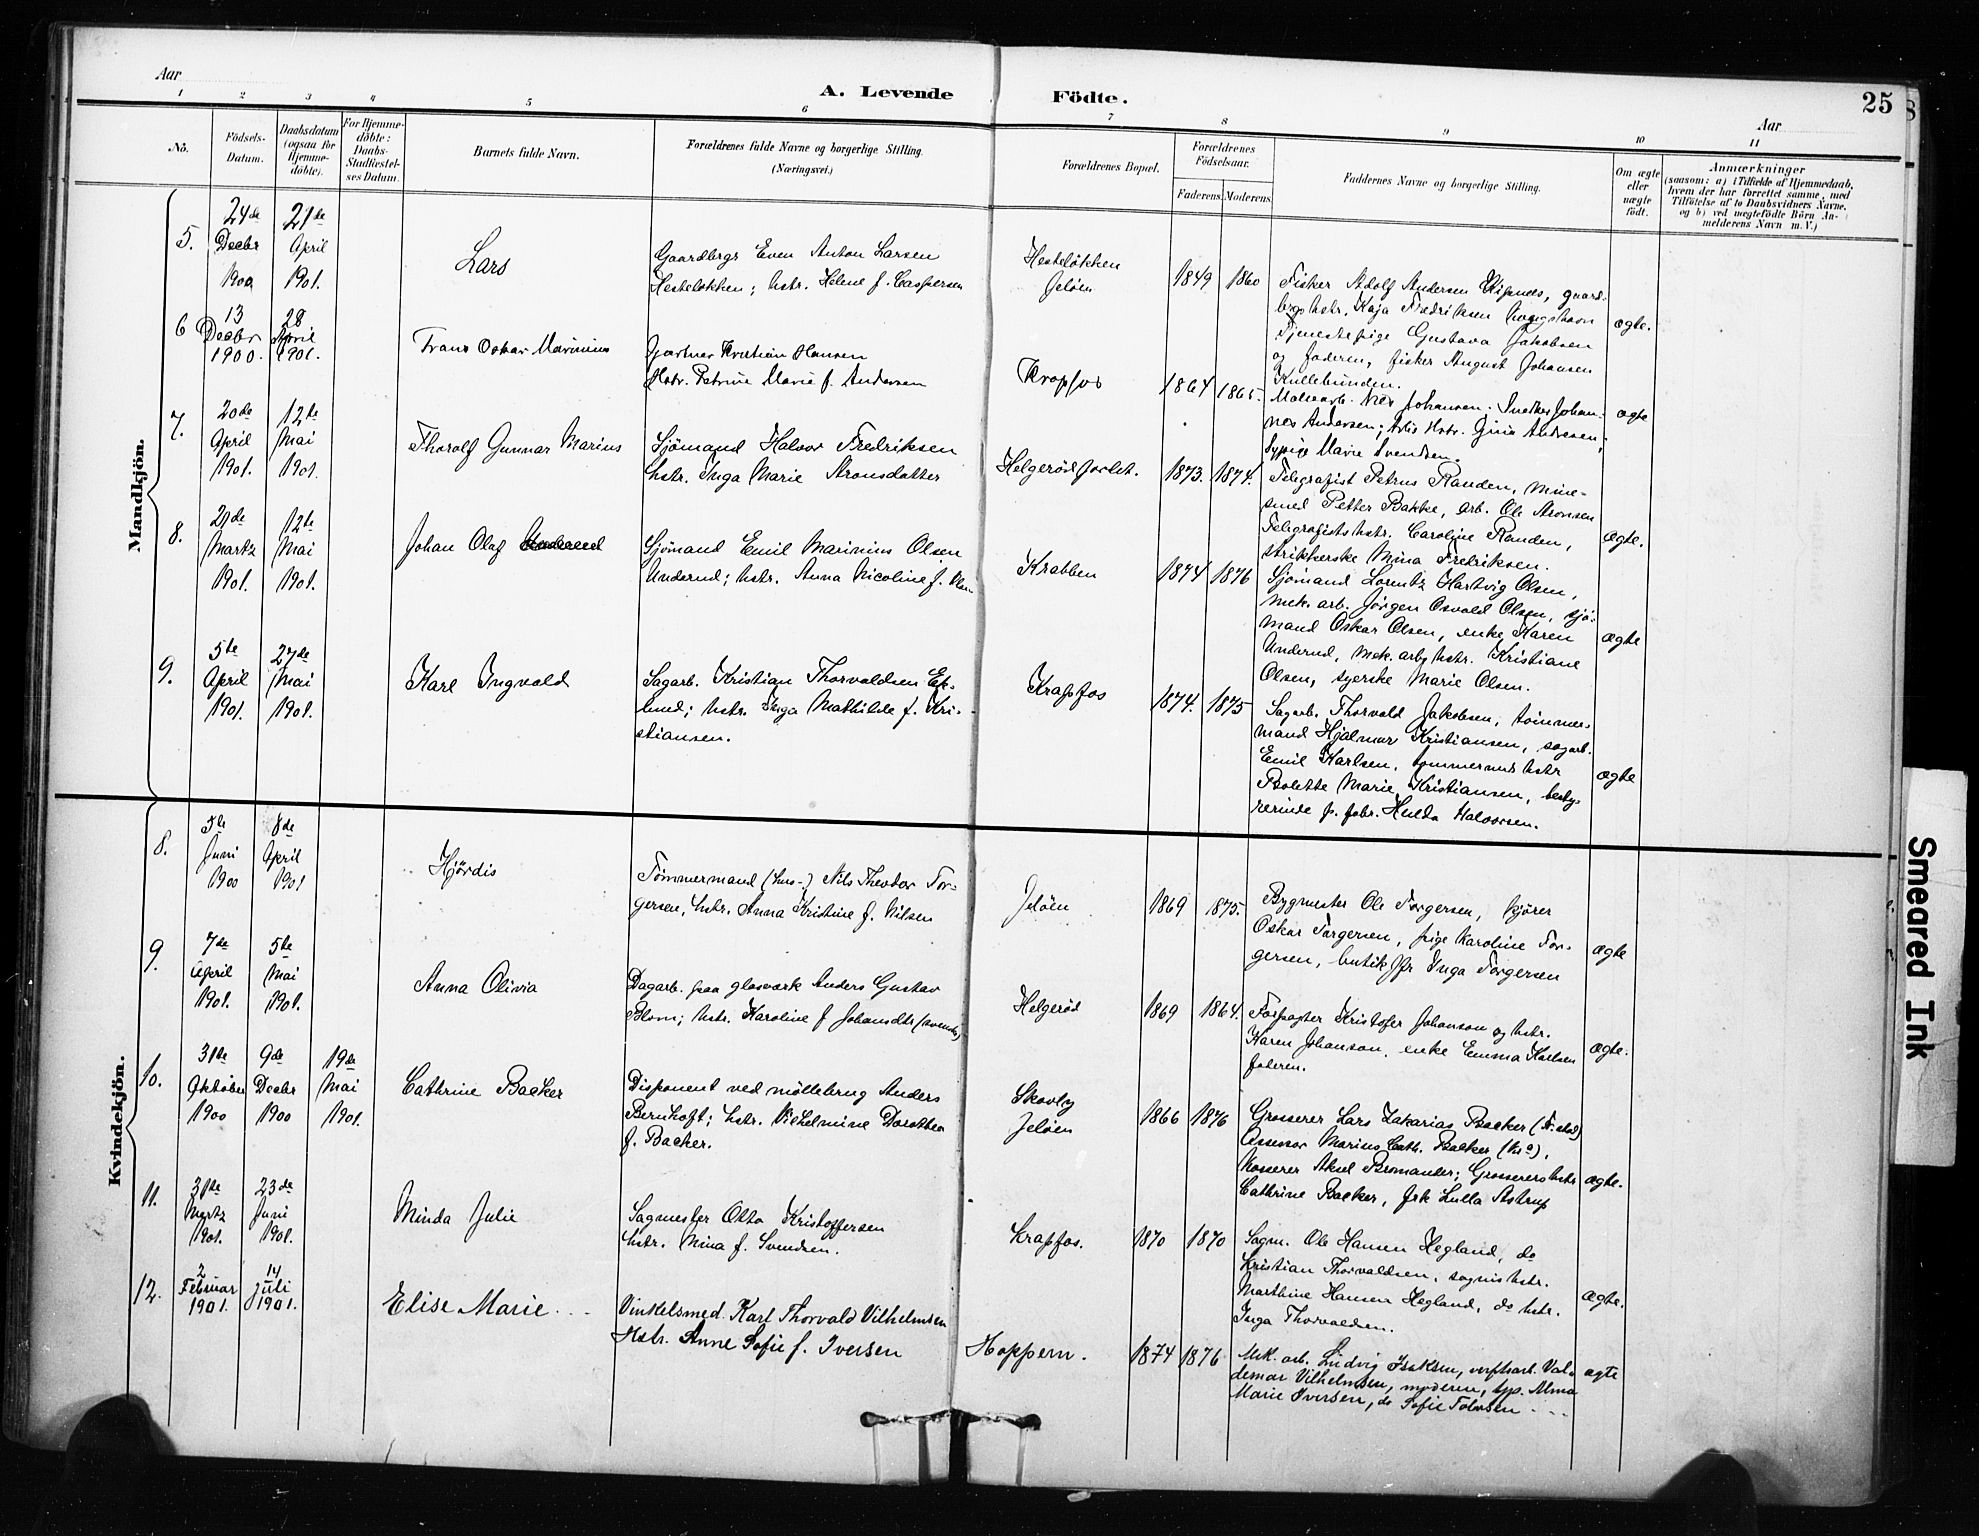 Aar
A. Levende Födte.
25
Aar
1 2 3 4 5 6 7 8 9 10 11
No.
Födsels-Datum.
Daabsdatum (ogsaa for Hjemmedöbte).
For Hjemmedöbte: Daabs-Stadfæstelses Datum.
Barnets fulde Navn.
Forældrenes fulde Navne og borgerlige Stilling. (Næringsvei.)
Forældrenes Bopæl.
Forældrenes Födselsaar.
Faderens Moderens
Faddernes Navne og borgerlige Stilling.
Om ægte eller uægte födt.
Anmærkninger
(saasom: a) i Tilfælde af Hjemmedaab, hvem der har forrettet samme, med Tilföielse af to Daabsvidners Navne. og b) ved uægtefödte Börn Anmelderens Navn m. V.)
Mandkjön.
5.
24de Decbr 1900
21de April 1901.
Lars
Gaardbergs Even Anton Larsen
Hesteløkken; hstr. Helene f. Caspersen
Hesteløkken
Jeløen
1849 1860
Fisker Adolf Andersen Kipenes, gaard-
brgs hstr. Kaja Fredriksen
Tjenestepige Gustava Jakobsen
og faderen, fisker August Johansen
Kullebunden.
ægte.
6
13 Decbr 1900.
28 April 1901.
Frans Oskar Marinius
Gartner Kristian Hansen
Hstr. Petrine Marie f. Andersen
Krapfos
1864 1865.
Johansen. Snedker Johan-
nes Andersen; Arbs Hstr. Gina Andresen;
Sypige Marie Svendsen.
ægte
7.
20de April 1901.
12te Mai 1901.
Thorolf Gunnar Marius
Sjömand Halvor Fredriksen
hstr. Inga Marie Aronsdatter
Helgerödfoslet.
1873. 1874.
Telegrafist Petrus Randen, mine-
smed Petter Bakke, arb. Ole Aronsen
Telegrafists hstr. Caroline Randen,
strikkerske Mina Fredriksen.
ægte.
8.
29de Martz 1901.
12te Mai 1901.
Johan Olaf
Sjömand Emil Marinius Olsen
Underud; hstr. Anna Nicoline f. Olsen
Krabben
1874 1876
Sjömand Lorentz Hartvig Olsen,
mek. arb. Jörgen Osvald Olsen, sjö-
mand Oskar Olsen, enke Karen
Underud, mek. arbs hstr. Kristiane
Olsen, syerske Marie Olsen.
ægte
9.
5te April 1901.
27de Mai 1901.
Karl Ingvald
Sagarb. Kristian Thorvaldsen Ek-
lund; hstr. Inga Mathilde f. Kri-
stiansen.
Krapfos
1874. 1875
Sagarb. Thorvald Jakobsen, tömmer-
mand Hjalmar Kristiansen, sagarb.
Emil Karlsen, tömmermds hstr
Bolette Marie Kristiansen, besty-
rerinde p. fabr. Hulda Halvorsen.
ægte
Kvindekjön.
8.
5te Juni 1900
8de April 1901
Hjördis
Tömmermand (hus-) Nils Theodor Tor-
gersen, hstr. Anna Kristine f. Nilsen
Jelöen
1869 1875.
Bygmester Ole Torgersen, kjører
Oskar Torgersen, pige Karoline Tor-
gersen, butikjfr Inga Torgersen
ægte
9.
7de April 1901.
5te Mai 1901.
Anna Olivia
Dagarb. paa glasværk Anders Gustav
Blom; hstr. Karoline f Johansdtr (svensk)
Helgeröd
1869 1864.
Forpagter Kristofer Johanson og hstr.
Karen Johanson, enke Emma Karlsen
faderen.
ægte.
10.
31te Oktober 1900
9de Decbr 1900
19de Mai 1901.
Cathrine Backer
Disponent ved møllebrug Anders
Bernhoft; hstr. Vilhelmine Dorothea
f. Backer.
Skovly
Jeløen
1866 1876
Grosserer Lars Zakarias Backer (Fr.stad)
Assessor Marius Cath. Backer (Kra),
Kasserer Aksel Bromander; Grosserers hstr
Cathrine Backer, frk Lulla Astrup
ægte.
11.
31te Martz 1901.
23de Juni 1901.
Minda Julie
Sagmester Otto Kristoffersen
hstr. Mina f. Svendsen.
Krapfos.
1870 1870
Sagm. Ole Hansen Hegland, do
Kristian Thorvaldsen, sagms hstr.
Marthine Hansen Hegland, do hstr.
Inga Thorvaldsen.
ægte.
12.
2 Februar 1901.
14 Juli 1901.
Elise Marie
Vinkelsmed Karl Thorvald Vilhelmsen
Hstr. Anne Sofie f. Iversen
Hoppern.
1874 1876
Mek. arb. Ludvig Isaksen, verftsarb. Val-
demar Vilhelmsen, moderen, syp. Alma
Marie Iversen, do Sofie Tobiasen
ægte
Smeared Ink